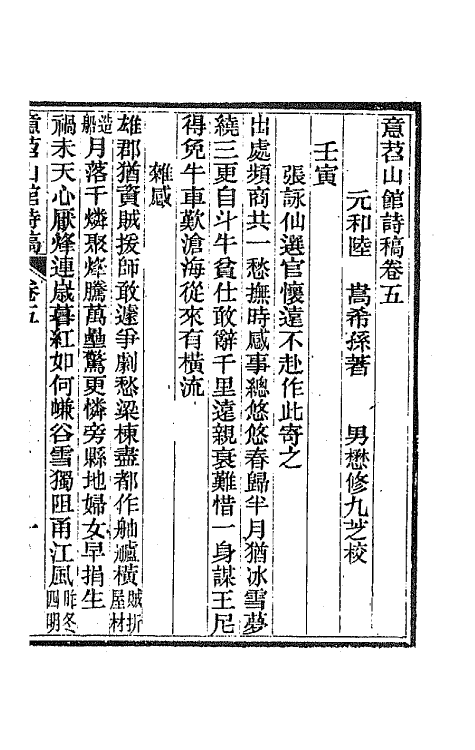 意苕山館詩稿卷五
元和陸 嵩希孫著 男懋修九芝校
壬寅
張詠仙選官懷遠不赴作此寄之
出處頻商共一愁撫時感事總悠悠春歸半月猶冰雪夢
繞三更自斗牛貧仕敢辭千里遠親衰難惜一身謀王尼
得免牛車歎滄海從來有橫流
雜感
雄郡猶資賊援師敢遽爭劇愁梁棟盡都作舳艫橫賊折屋材
造船月落千燐聚烽騰萬壘驚更憐旁縣地婦女早捐生
禍未天心厭烽連歲暮紅如何嶰谷雪獨阻甬江風昨冬四明
意苕山館詩稿 卷五 一